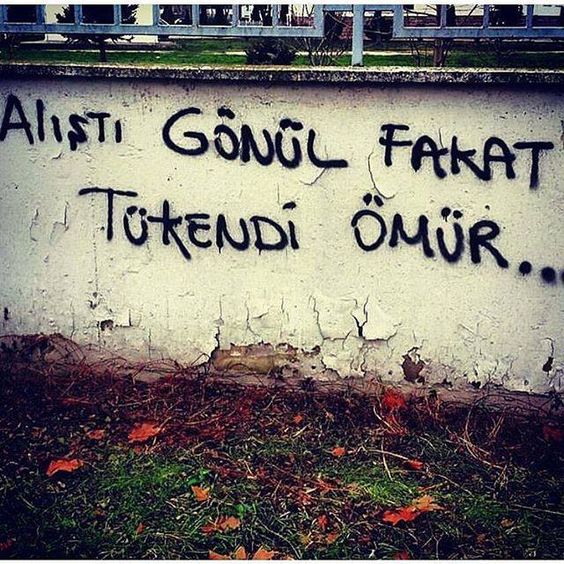 ALIŞTI GÖNÜL FAKAT
TÜKENDİ ÖMÜR...